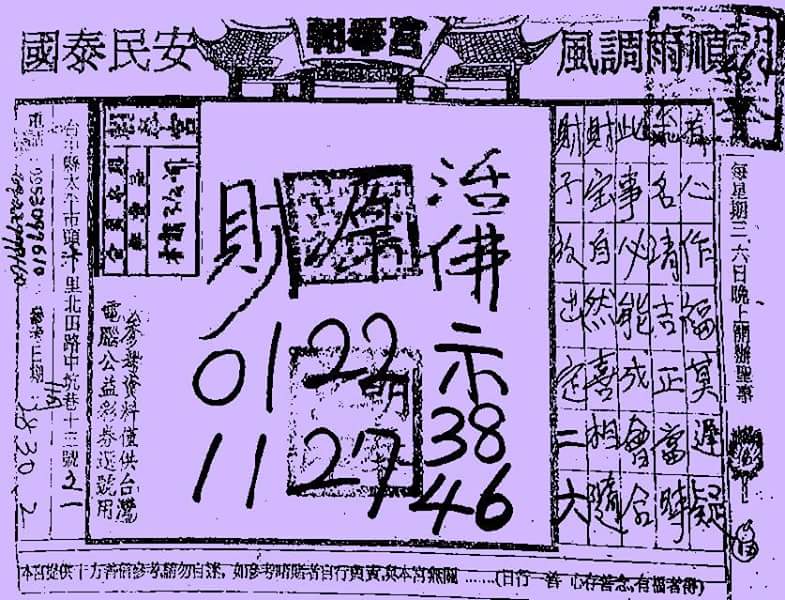 國泰民安
風調雨順
每星期三六日晚上開辦聖事
有心作福莫遲疑
名清吉正當時
此事必能成會合
財寶自然喜相隨
財子放出定二大
活佛示
財源
01 22 38
11 27 46
參考資料僅供台灣
電腦公益彩券選號用
台中縣太平市頭汴里北田路中坑巷十三號之一
本宮提供十方善信參考,請勿自迷,如參考賭賭者自行負責,與本宮無關......(日行一善 心存善念,有福者得)